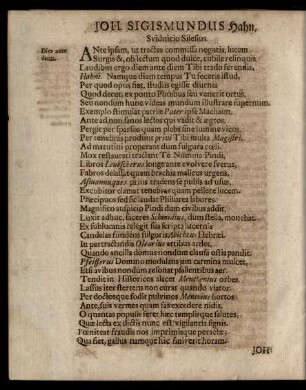 JOH. SIGISMUNDUS Hahn,
Svidnicio Silesus.
Dies ante
diem.
ANte ipsam, ut tractes commissa negotia, lucem
Surgis &, ob lectum quod dulce, cubile relinquis
Laudibus ergo diem ante diem Tibi trado ferendis,
Hahni. Namque diem tempus Tu feceris istud,
Per quod opus fiet, studiis egisse diurnis
Quod decet, ex ponto Phœbus ubi venerit ortus.
Seu nondum hunc videas mundum illustrare supernum.
Exemplo stimulat patriæ Pater ipse Musarum.
Ante ad non sanos lector qui vadit & ægtos,
Pergit per sparsos quam plebs sine lumine vicos.
Per tenebras prodiens privi Tibi multa Magistri,
Ad matutini properant dum fulgura cœli.
Mox restaurati tractans Te Numine Pindi,
Libros evolvere svetus,
Fabros delassat quam brachia malleus urgens,
pirios tradens se publis ad usus,
Excubitor clamat tenebras quam pellere lucem.
Præcipuos sed sic laudat Philuras labores:
Magnifico suspicio Pindi dum civibus addit,
Luxit adhuc, faceres dum stella, monebat.
Ex sublucanis relegit sua scripta lucernis
Candelæ fundens fulgur Hebræi.
In pertractandis Olearius artibus ardet,
Quando ancilla domus nondum clausa ostia pandit.
Pfeifferus Domino modulans jam carmina mulcet,
Etsi avibus nondum resonat psallentibus aër.
Tendit in Historicos alacer Menckenius orbes,
Lassus iter sterterio non errat quando viator.
Per doctosque sodis pulvinos hortos
Ante, suis vermes quam fas excedere nidis,
O quantas populis feret hæc templisque salutes,
Quæ lecta ex dictis nunc est vigilantia signis.
Pœnitest fraudis nos imprimisque peractæ;
Qua fiet, gallus namque hac finiverit horam.
JOH: